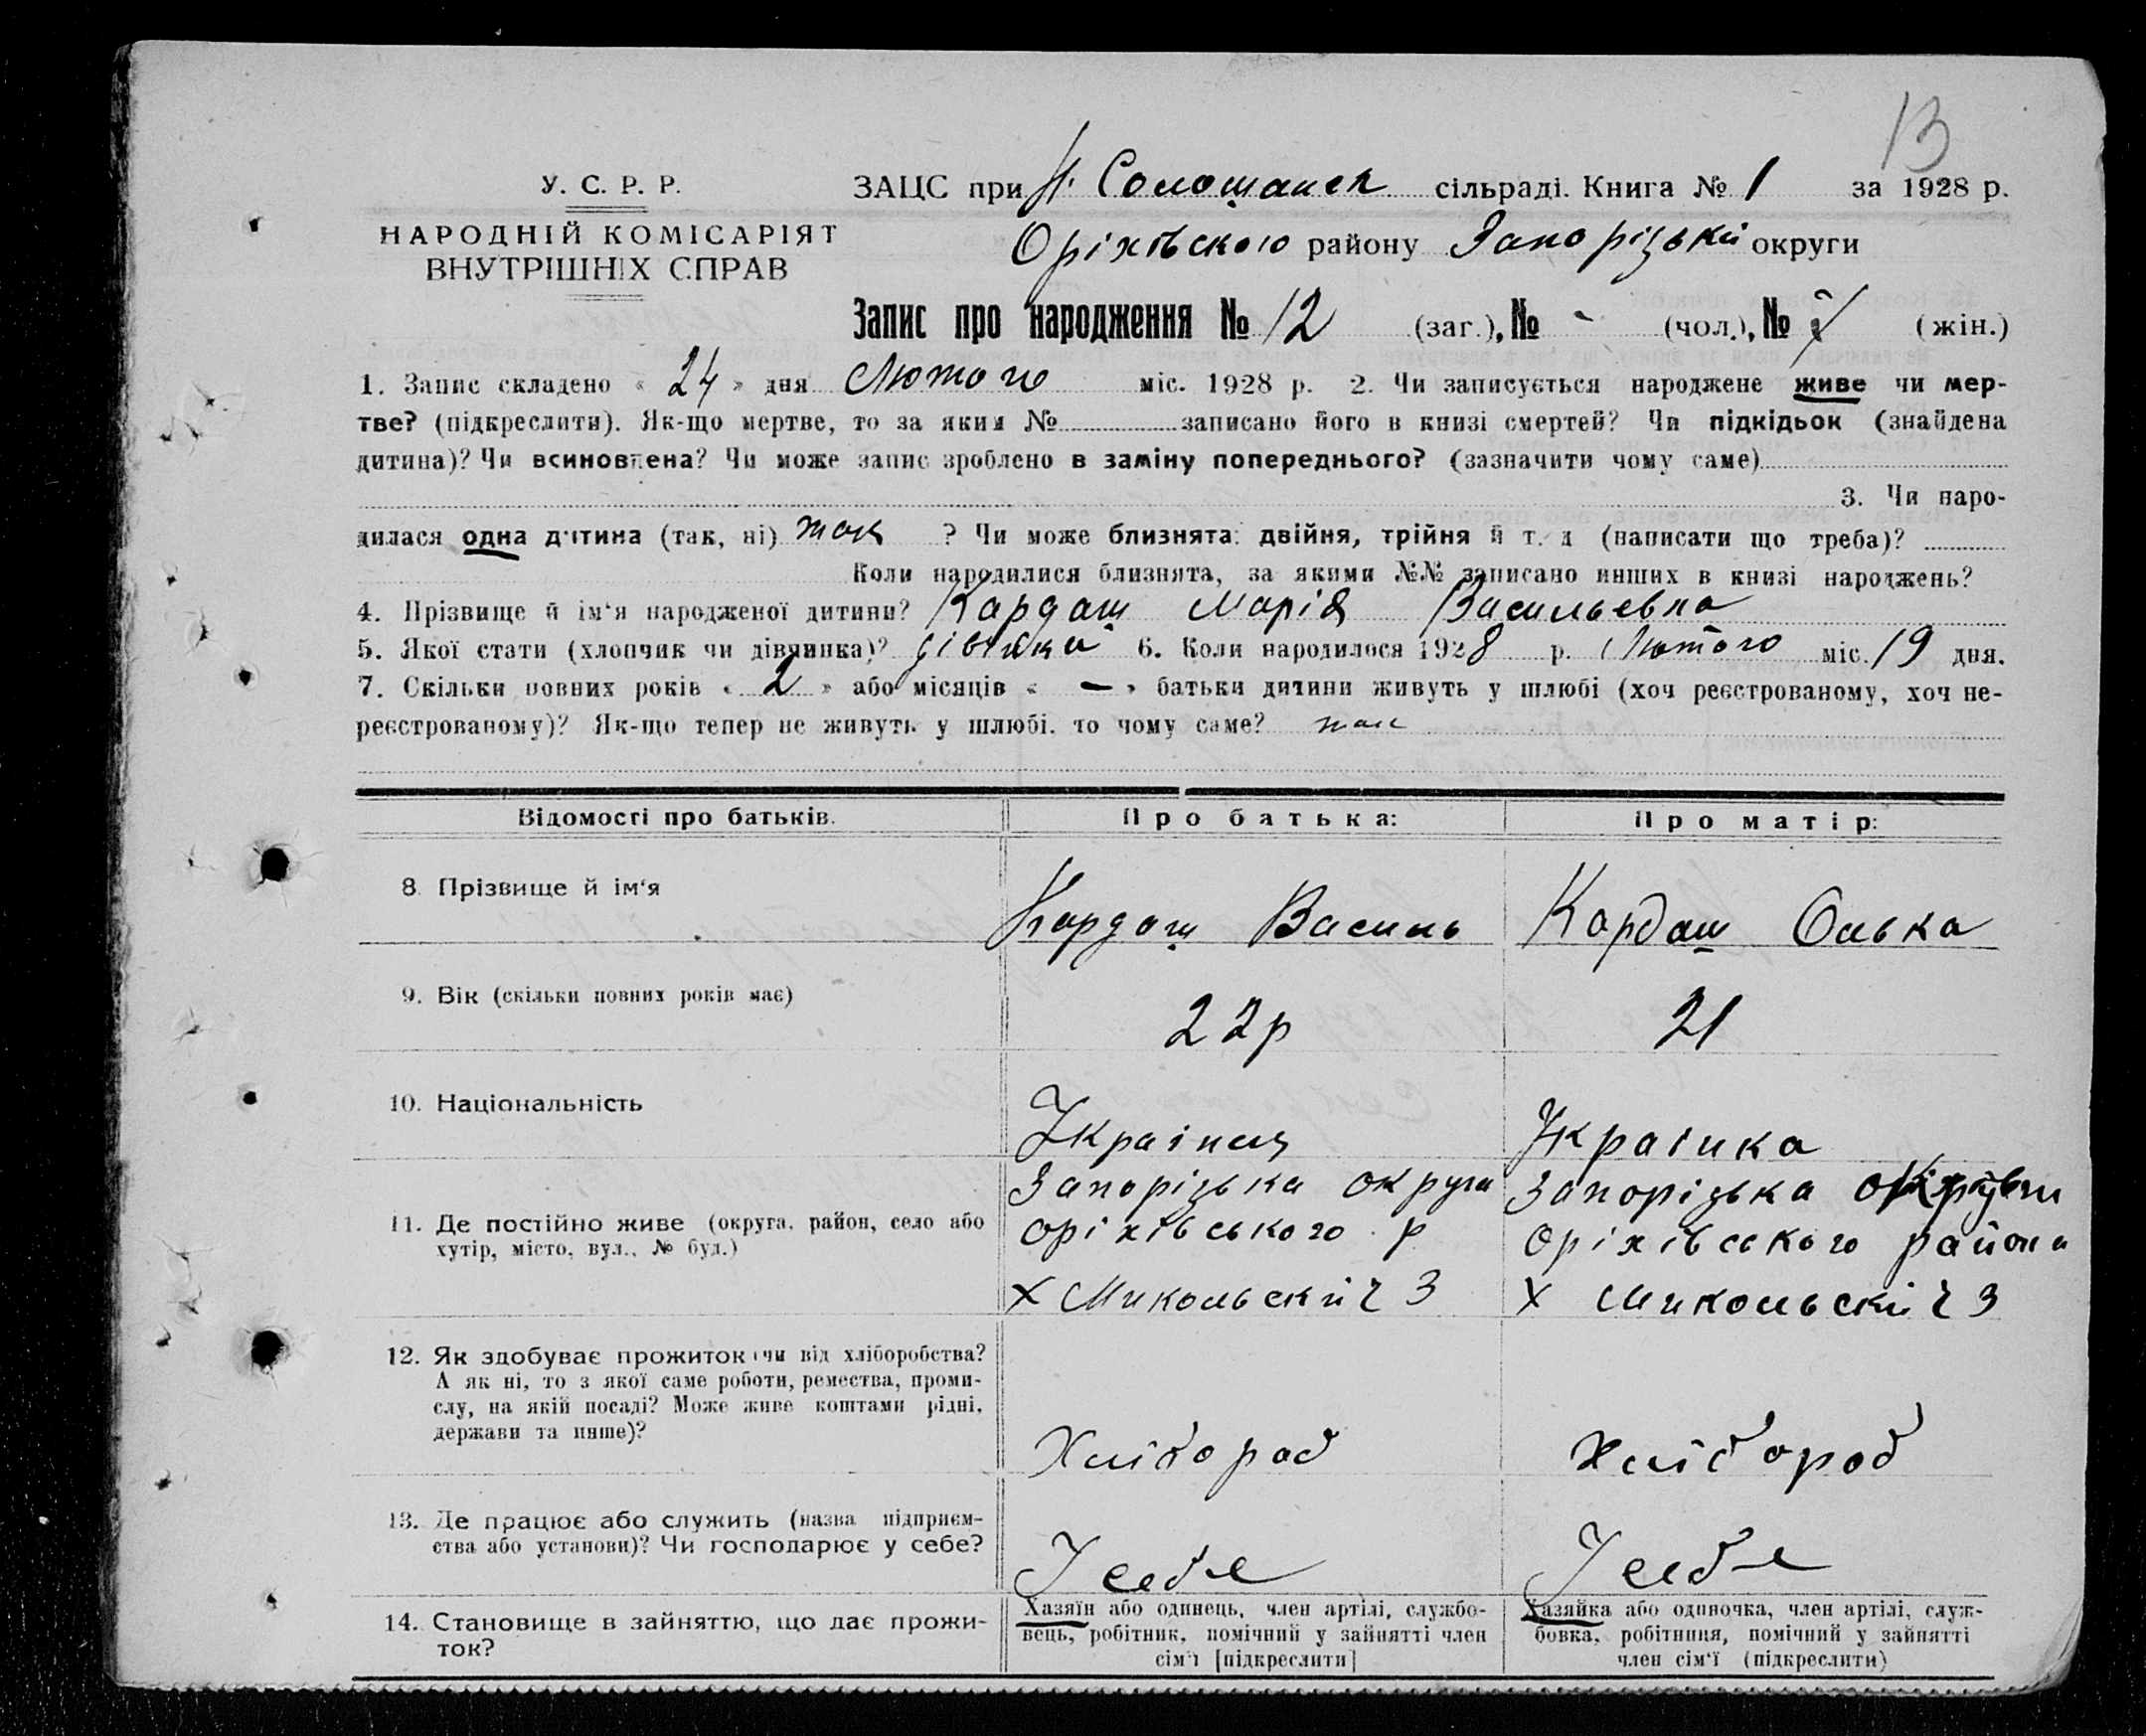 13
У. С. Р. Р.
НАРОДНІЙ КОМІСАРІЯТ
ВНУТРІШНІХ СПРАВ
ЗАЦС при сільраді. Книга № 1 за 1928 р.
Оріхівского району Запорізькій округи
Запис про народження № 12 (заг.), № - (чол.), № (жін.)
1. Запис складено « 24 » дня Лютого міс. 1928 р. 2. Чи записується народжене живе чи мер-
тве? (підкреслити). Як-що мертве, то за яким № записано його в книзі смертей? Чи підкідьок (знайдена
дитина)? Чи всиновлена? Чи може запис зроблено в заміну попереднього? (зазначити чому саме)
3. Чи наро-
дилася одна дитина (так, ні) так ? Чи може близнята: двійня, трійня й т. д (написати що треба)?
Коли народилися близнята, за якими №№ записано инших в книзі народжень?
4. Прізвище й ім'я народженої дитини? Кардаш Марія Васильевна
5. Якої стати (хлопчик чи дівчинка)? 6. Коли народилося 1928 р. Лютого міс. 19 дня.
7. Скільки повних років « 2 » або місяців « — » батьки дитини живуть у шлюбі (хоч реєстрованому, хоч не-
реєстрованому)? Як-що тепер не живуть у шлюбі, то чому саме?
Відомості про батьків. Про батька: Про матір:
8. Прізвище й ім'я Кардаш Василь Кардаш Олька
9. Вік (скільки повних років має) 22р 21
10. Національність Українец Украінка
11. Де постійно живе (округа, район, село або
хутір, місто, вул., № буд.)
Запорізька округа Запорізька округи
Оріхівського р Оріхівского района
Х Микольский 2 3 Х Микольский 2 3
12. Як здобуває прожиток (чи від хліборобства?
А як ні, то з якої саме роботи, ремества, проми-
слу, на якій посаді? Може живе коштами рідні,
держави та инше)?
Хлібороб Хлібороб
13. Де працює або служить (назва підприєм-
ства або установи)? Чи господарює у себе?
У себе У себе
14. Становище в зайняттю, що дає прожи-
ток?
Хазяїн або одинець, член артілі, службо-
вець, робітник, помічний у зайнятті член
сім'ї [підкреслити]
Хазяйка або одиночка, член артілі, служ-
бовка, робітниця, помічний у зайнятті
член сім'ї (підкреслити)